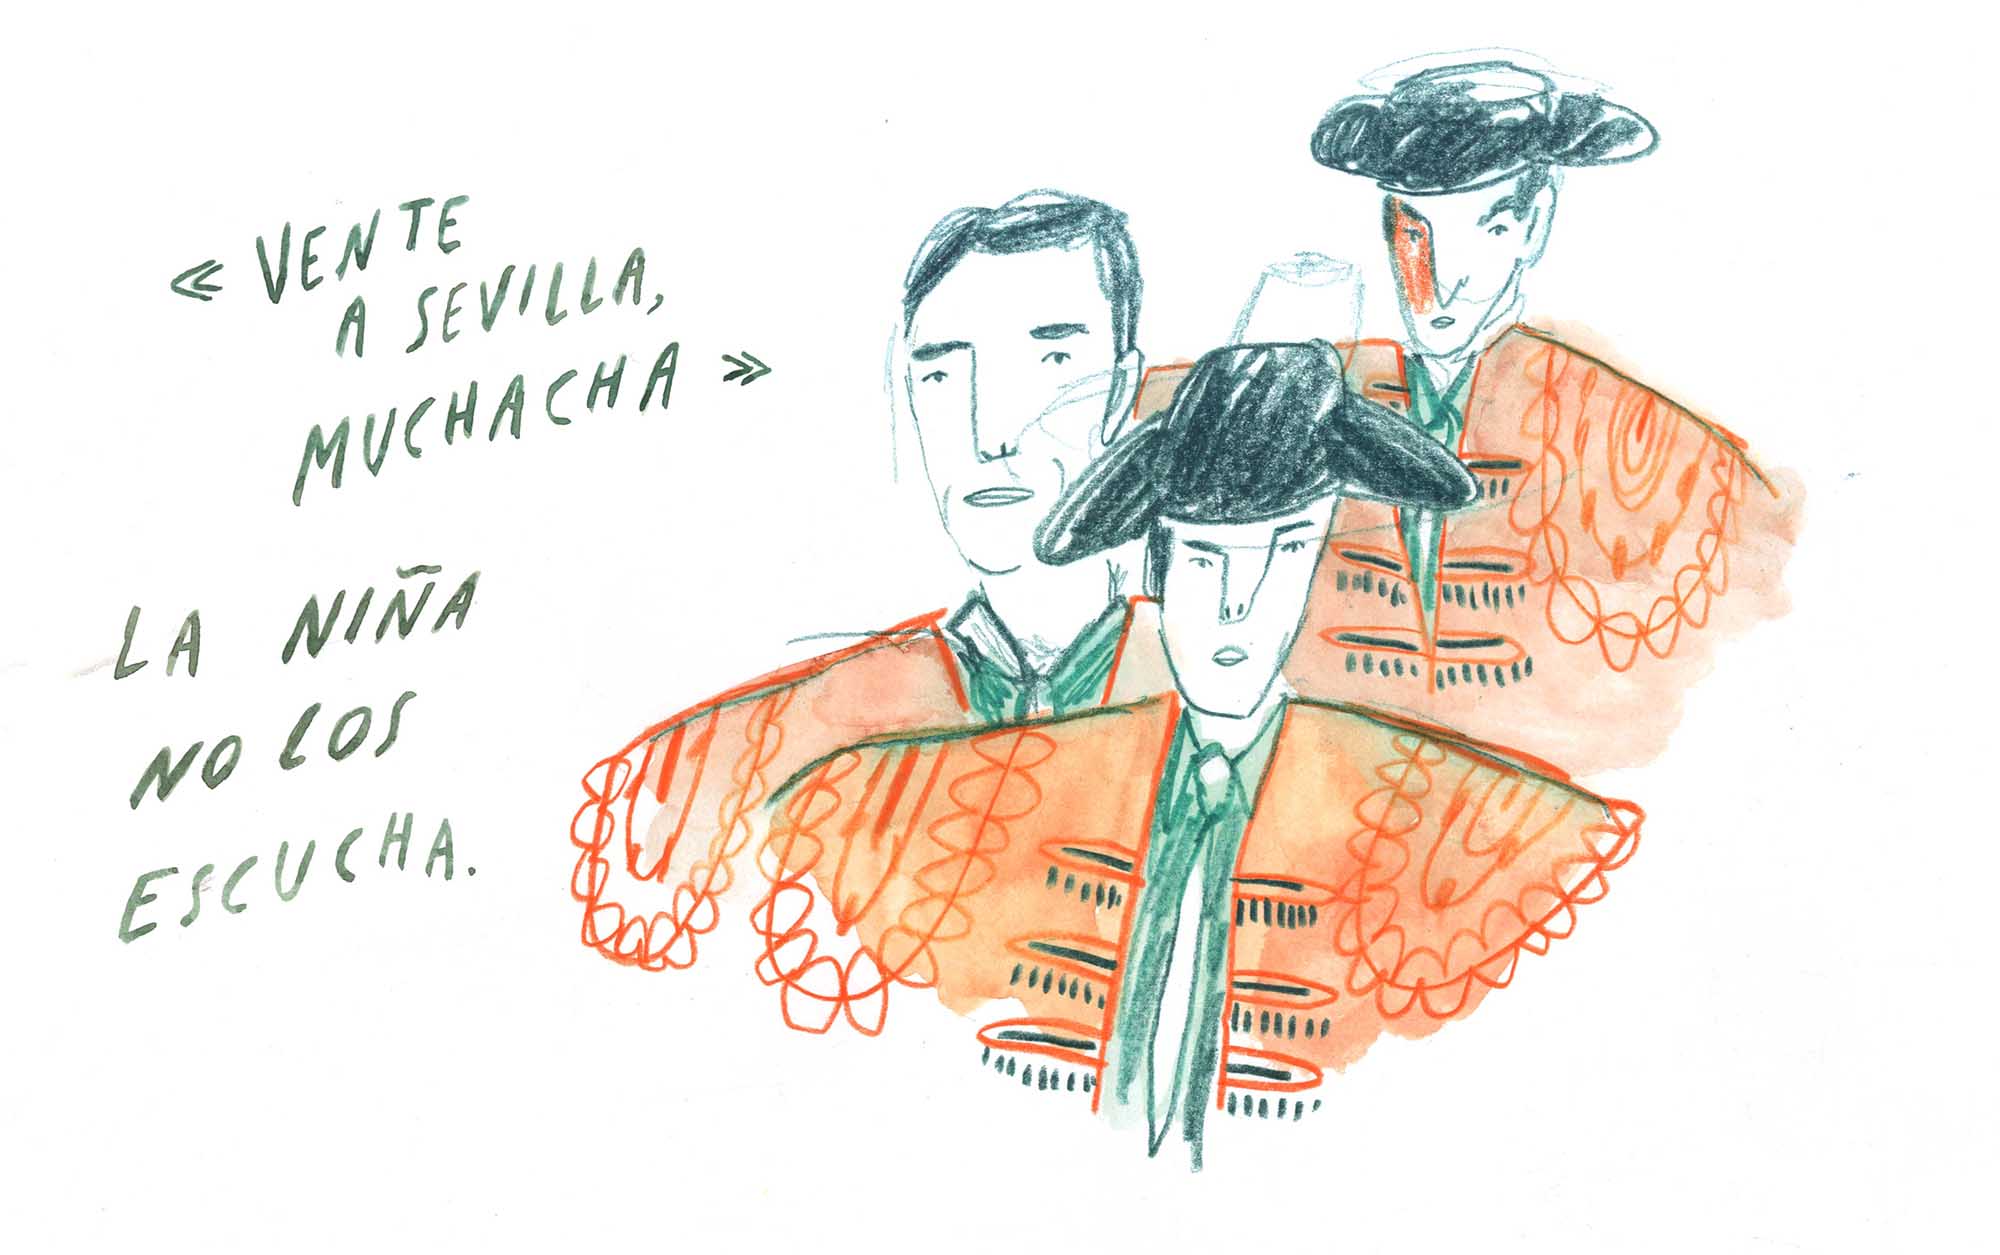 « VENTE
A SEVILLA,
MUCHACHA »
LA NIÑA
NO LOS
ESCUCHA.